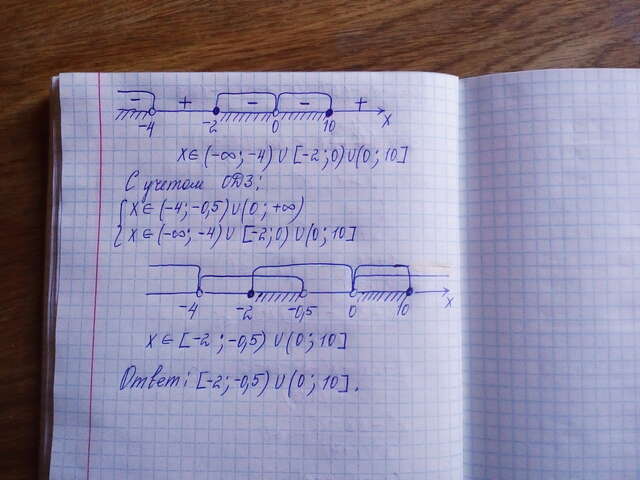 - + - - +
-4 -2 0 10 x
x ∈ (-∞; -4) ∪ [-2; 0) ∪ (0; 10]
С учетом ОДЗ:
{ x ∈ (-4; -0,5) ∪ (0; +∞)
x ∈ (-∞; -4) ∪ [-2; 0) ∪ (0; 10]
-4 -2 -0,5 0 10 x
x ∈ [-2; -0,5) ∪ (0; 10]
Ответ: [-2; -0,5) ∪ (0; 10].